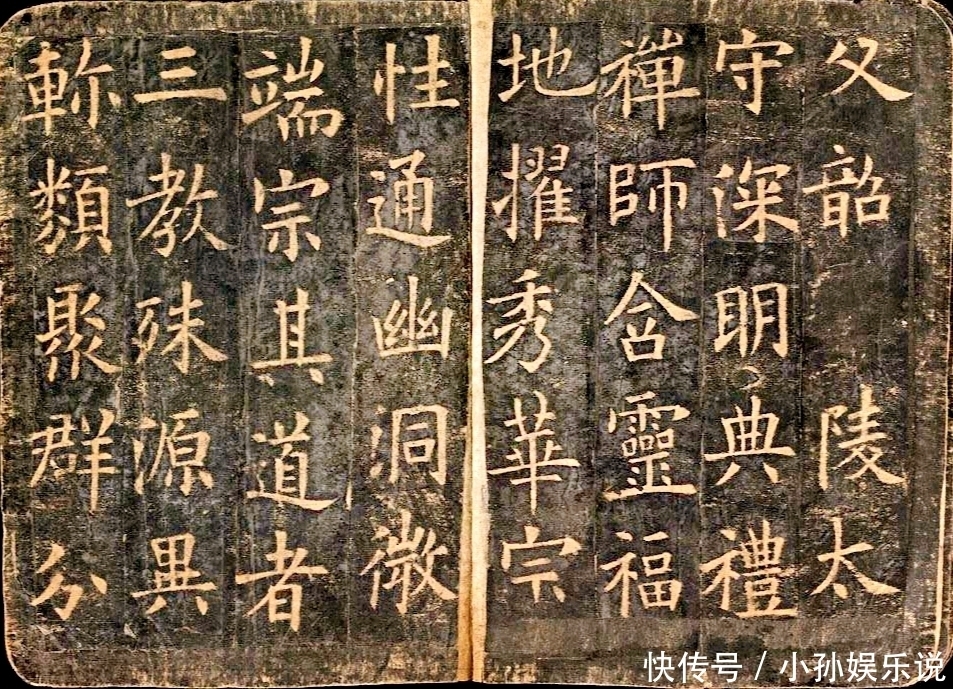 父韶陵太
守深明典禮
禪師含靈福
地擢秀華宗
性通幽洞微
端宗其道者
三教殊源異
軫類聚群分
快传号 / 小孙娱乐说